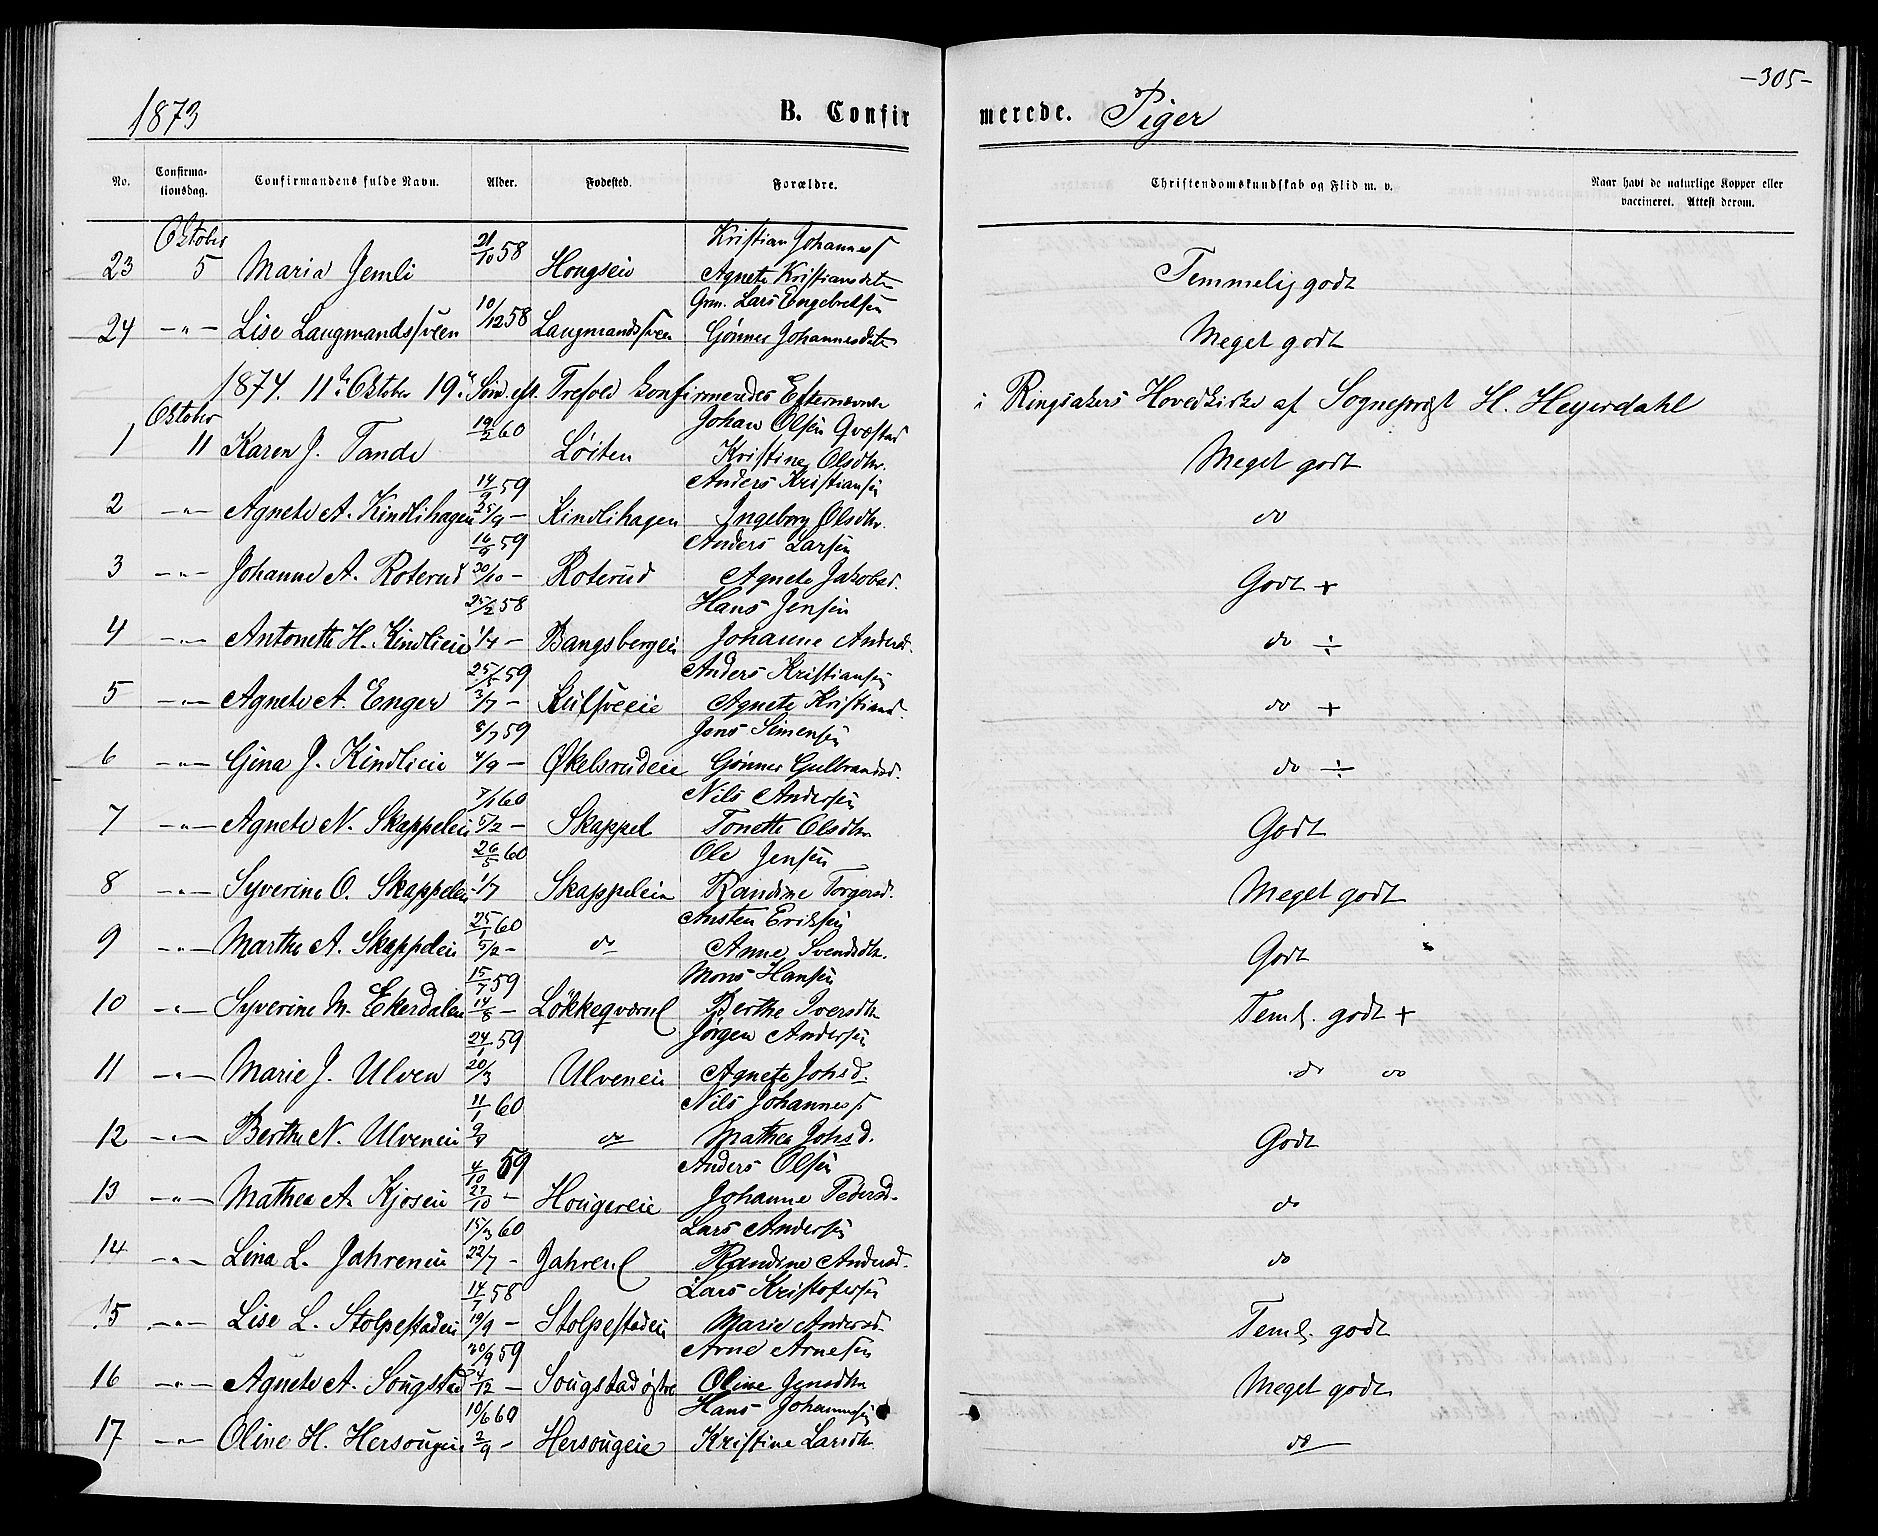 -305-
1873 B. Confirmerede. Piger
No. Confirmationsdag. Confirmandens fulde Navn. Alder. Fødested. Forældre. Christendomskundskab og Flid m. v. Naar havt de naturlige Kopper eller vaccineret. Attest derom.
Oktober 21/10 58 Kristian Johanness
23 5 Maria Jemli Hougseie Agnete Kristiansdtr Temmelig godt
10/12 58 Grm. Lars Engebretsen
24 -"- Lise Laugmandssveen Laugmandssveen Gönner Johannesdtr Meget godt
1874. 11te Oktober 19. Sønd. eft. Trefold konfirmeredes Efternævnte i Ringsakers Hovedkirke af Sogneprest H. Heyerdahl
Oktober 19/2 60 Johan Olsen Qvæstad
1 11 Karen J. Tande Löiten Kristine Olsdtr. Meget godt
14/9 59 Anders Kristiansen
2 -"- Agnete A. Kindlihagen 25/9 - Kindlihagen Ingeborg Olsdtr. do
16/9 59 Anders Larsen
3 -"- Johanne A. Roterud 30/10 - Roterud Agnete Jakobsd. Godt +
25/2 58 Hans Jensen
4 -"- Antonette H. Kindlieie 1/4 - Bangsbergeie Johanne Andersd. do ÷
25/5 59 Anders Kristiansen
5 -"- Agnete A. Enger 3/7 - Kulsveeie Agnete Kristiansd. do +
8/7 59 Jens Simensen
6 -"- Gina J. Kindlieie 4/9 - Økelsrudeie Gönner Gulbrandsd. do ÷
7/1 60 Nils Andersen
7 -"- Agnete N. Skappeleie 5/2 - Skappel Tonette Olsdtr Godt
26/5 60 Ole Jensen
8 -"- Syverine O. Skappeleie 1/7 Skappeleie Randine Torgersd. Meget godt
25/1 60 Austen Eriksen
9 -"- Marthe A. Skappeleie 5/2 - do Anne Svendsdtr. Godt
15/7 59 Mons Hansen
10 -"- Syverine M. Ekerdalen 14/8 - Lökkeqværnl Berthe Iversdtr Teml. godt +
24/1 59 Jörgen Andersen
11 -"- Marie J. Ulven 20/3 Ulveneie Agnete Johsd. do do
11/1 60 Nils Johanness.
12 -"- Berthe N. Ulveneie do Mathea Johsd. Godt
4/10 59 Anders Olsen
13 -"- Mathea A. Kjoseie 27/10 - Hougereie Johanne Pedersd. do
15/3 60 Lars Andersen
14 -"- Lina L. Jahreneie 22/7 - Jahrenl Randine Andersd. do
14/7 58 Lars Kristofersen
15 -"- Lise L. Stolpestadeie 19/9 - Stolpestadeie Marie Andersd. Teml. godt
20/9 59 Arne Arnesen
16 -"- Agnete A. Sougstad 4/12 - Sougstad østre Oline Jensdtr Meget godt
10/6 60 Hans Johannesen
17 -"- Oline H. Hersougeie 2/9 - Hersougeie Kristine Larsdtr do